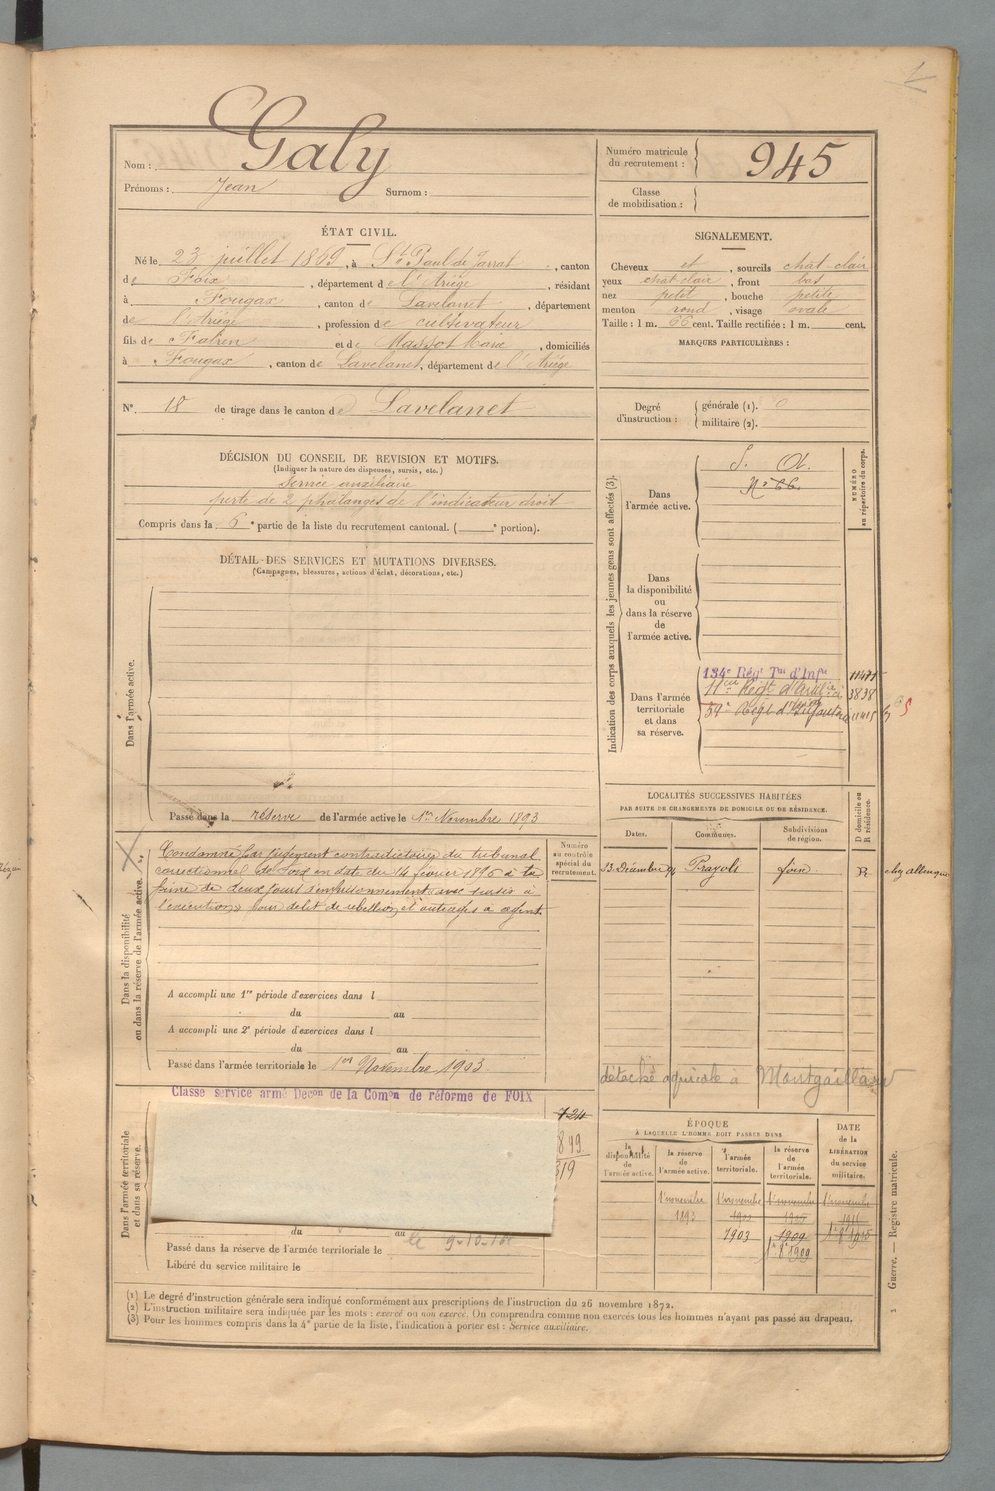 Nom : Galy
Prénoms : Jean Surnom :
Numéro matricule
du recrutement : 945
Classe
de mobilisation :
ÉTAT CIVIL.
Né le 23 juillet 1869, à St Paul de Jarrat, canton
de Foix, département de l'Ariège, résidant
à Fougax, canton de Lavelanet, département
de l'Ariège, profession de cultivateur
fils de et de Massot, domiciliés
à Fougax, canton de Lavelanet, département de l'Ariège
SIGNALEMENT.
Cheveux et, sourcils chat. clair
yeux chat clair, front bas
nez petit, bouche petite
menton rond, visage ovale
Taille : 1 m. 66 cent. Taille rectifiée : 1 m. cent.
MARQUES PARTICULIÈRES :
N° 18 de tirage dans le canton de Lavelanet
Degré
d'instruction :
générale (1). 0
militaire (2).
DÉCISION DU CONSEIL DE REVISION ET MOTIFS.
(Indiquer la nature des dispenses, sursis, etc.)
Service auxiliaire
perte de 2 phalanges de l'indicateur droit
Compris dans la 6e partie de la liste du recrutement cantonal. ( e portion).
DÉTAIL DES SERVICES ET MUTATIONS DIVERSES.
(Campagnes, blessures, actions d'éclat, décorations, etc.)
Dans l'armée active.
Passé dans la réserve de l'armée active le 1er Novembre 1893
Indication des corps auxquels les jeunes gens sont affectés (3).
NUMÉRO
au répertoire du corps.
Dans
l'armée active.
S. A.
N° 66
Dans
la disponibilité
ou
dans la réserve
de
l'armée active.
Dans l'armée
territoriale
et dans
sa réserve.
134e Régt Tal d'Infie 11471
3838
Régt d'Infanterie 11415
Dans la disponibilité
ou dans la réserve de l'armée active.
Numéro
au contrôle
spécial du
recrutement.
Condamné par jugement contradictoire du tribunal
correctionnel de Foix en date du 14 février 1896 à la
peine de deux jours d'emprisonnement avec sursis à
l'exécution pour délit de rebellion et outrages à agent.
A accompli une 1re période d'exercices dans l
du au
A accompli une 2e période d'exercices dans l
du au
Passé dans l'armée territoriale le 1er Novembre 1903
LOCALITÉS SUCCESSIVES HABITÉES
PAR SUITE DE CHANGEMENTS DE DOMICILE OU DE RÉSIDENCE.
Dates. Communes. Subdivisions
de région.
D domicile ou
R résidence.
Prayols foix R
détaché agricole à Montgaillard
Dans l'armée territoriale
et dans sa réserve.
Classe service armé Decon de la Comon de réforme de FOIX
724
899
319
du au le
Passé dans la réserve de l'armée territoriale le
Libéré du service militaire le
ÉPOQUE
À LAQUELLE L'HOMME DOIT PASSER DANS
la
disponibilité
de
l'armée active.
la réserve
de
l'armée active.
l'armée
territoriale.
la réserve
de
l'armée
territoriale.
DATE
de la
LIBÉRATION
du service
militaire.
1 novembre 1 novembre 1 novembre 1 novembre
1893
1903 1909
1909
Guerre. — Registre matricule.
2
(1) Le degré d'instruction générale sera indiqué conformément aux prescriptions de l'instruction du 26 novembre 1872.
(2) L'instruction militaire sera indiquée par les mots : exercé ou non exercé. On comprendra comme non exercés tous les hommes n'ayant pas passé au drapeau.
(3) Pour les hommes compris dans la 4e partie de la liste, l'indication à porter est : Service auxiliaire.